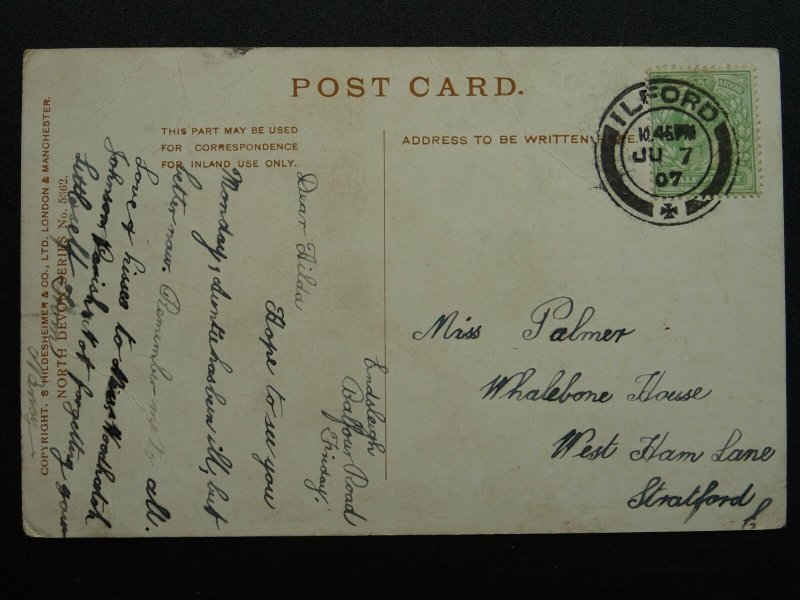 POST CARD.
THIS PART MAY BE USED
FOR CORRESPONDENCE
FOR INLAND USE ONLY.
ADDRESS TO BE WRITTEN HERE.
ILFORD
10.45 PM
JU 7
07
COPYRIGHT. S HILDESHEIMER & CO., LTD. LONDON & MANCHESTER.
NORTH DEVON SERIES No. 5362.
Endsleigh
Balfour Road
Friday.
Dear Hilda
Hope to see you
Monday, Auntie has been ill, but
better now. Remember me to all.
Love & kisses to
Johnson Not forgetting your
Little self
Miss Palmer
Whalebone House
West Ham Lane
Stratford
E